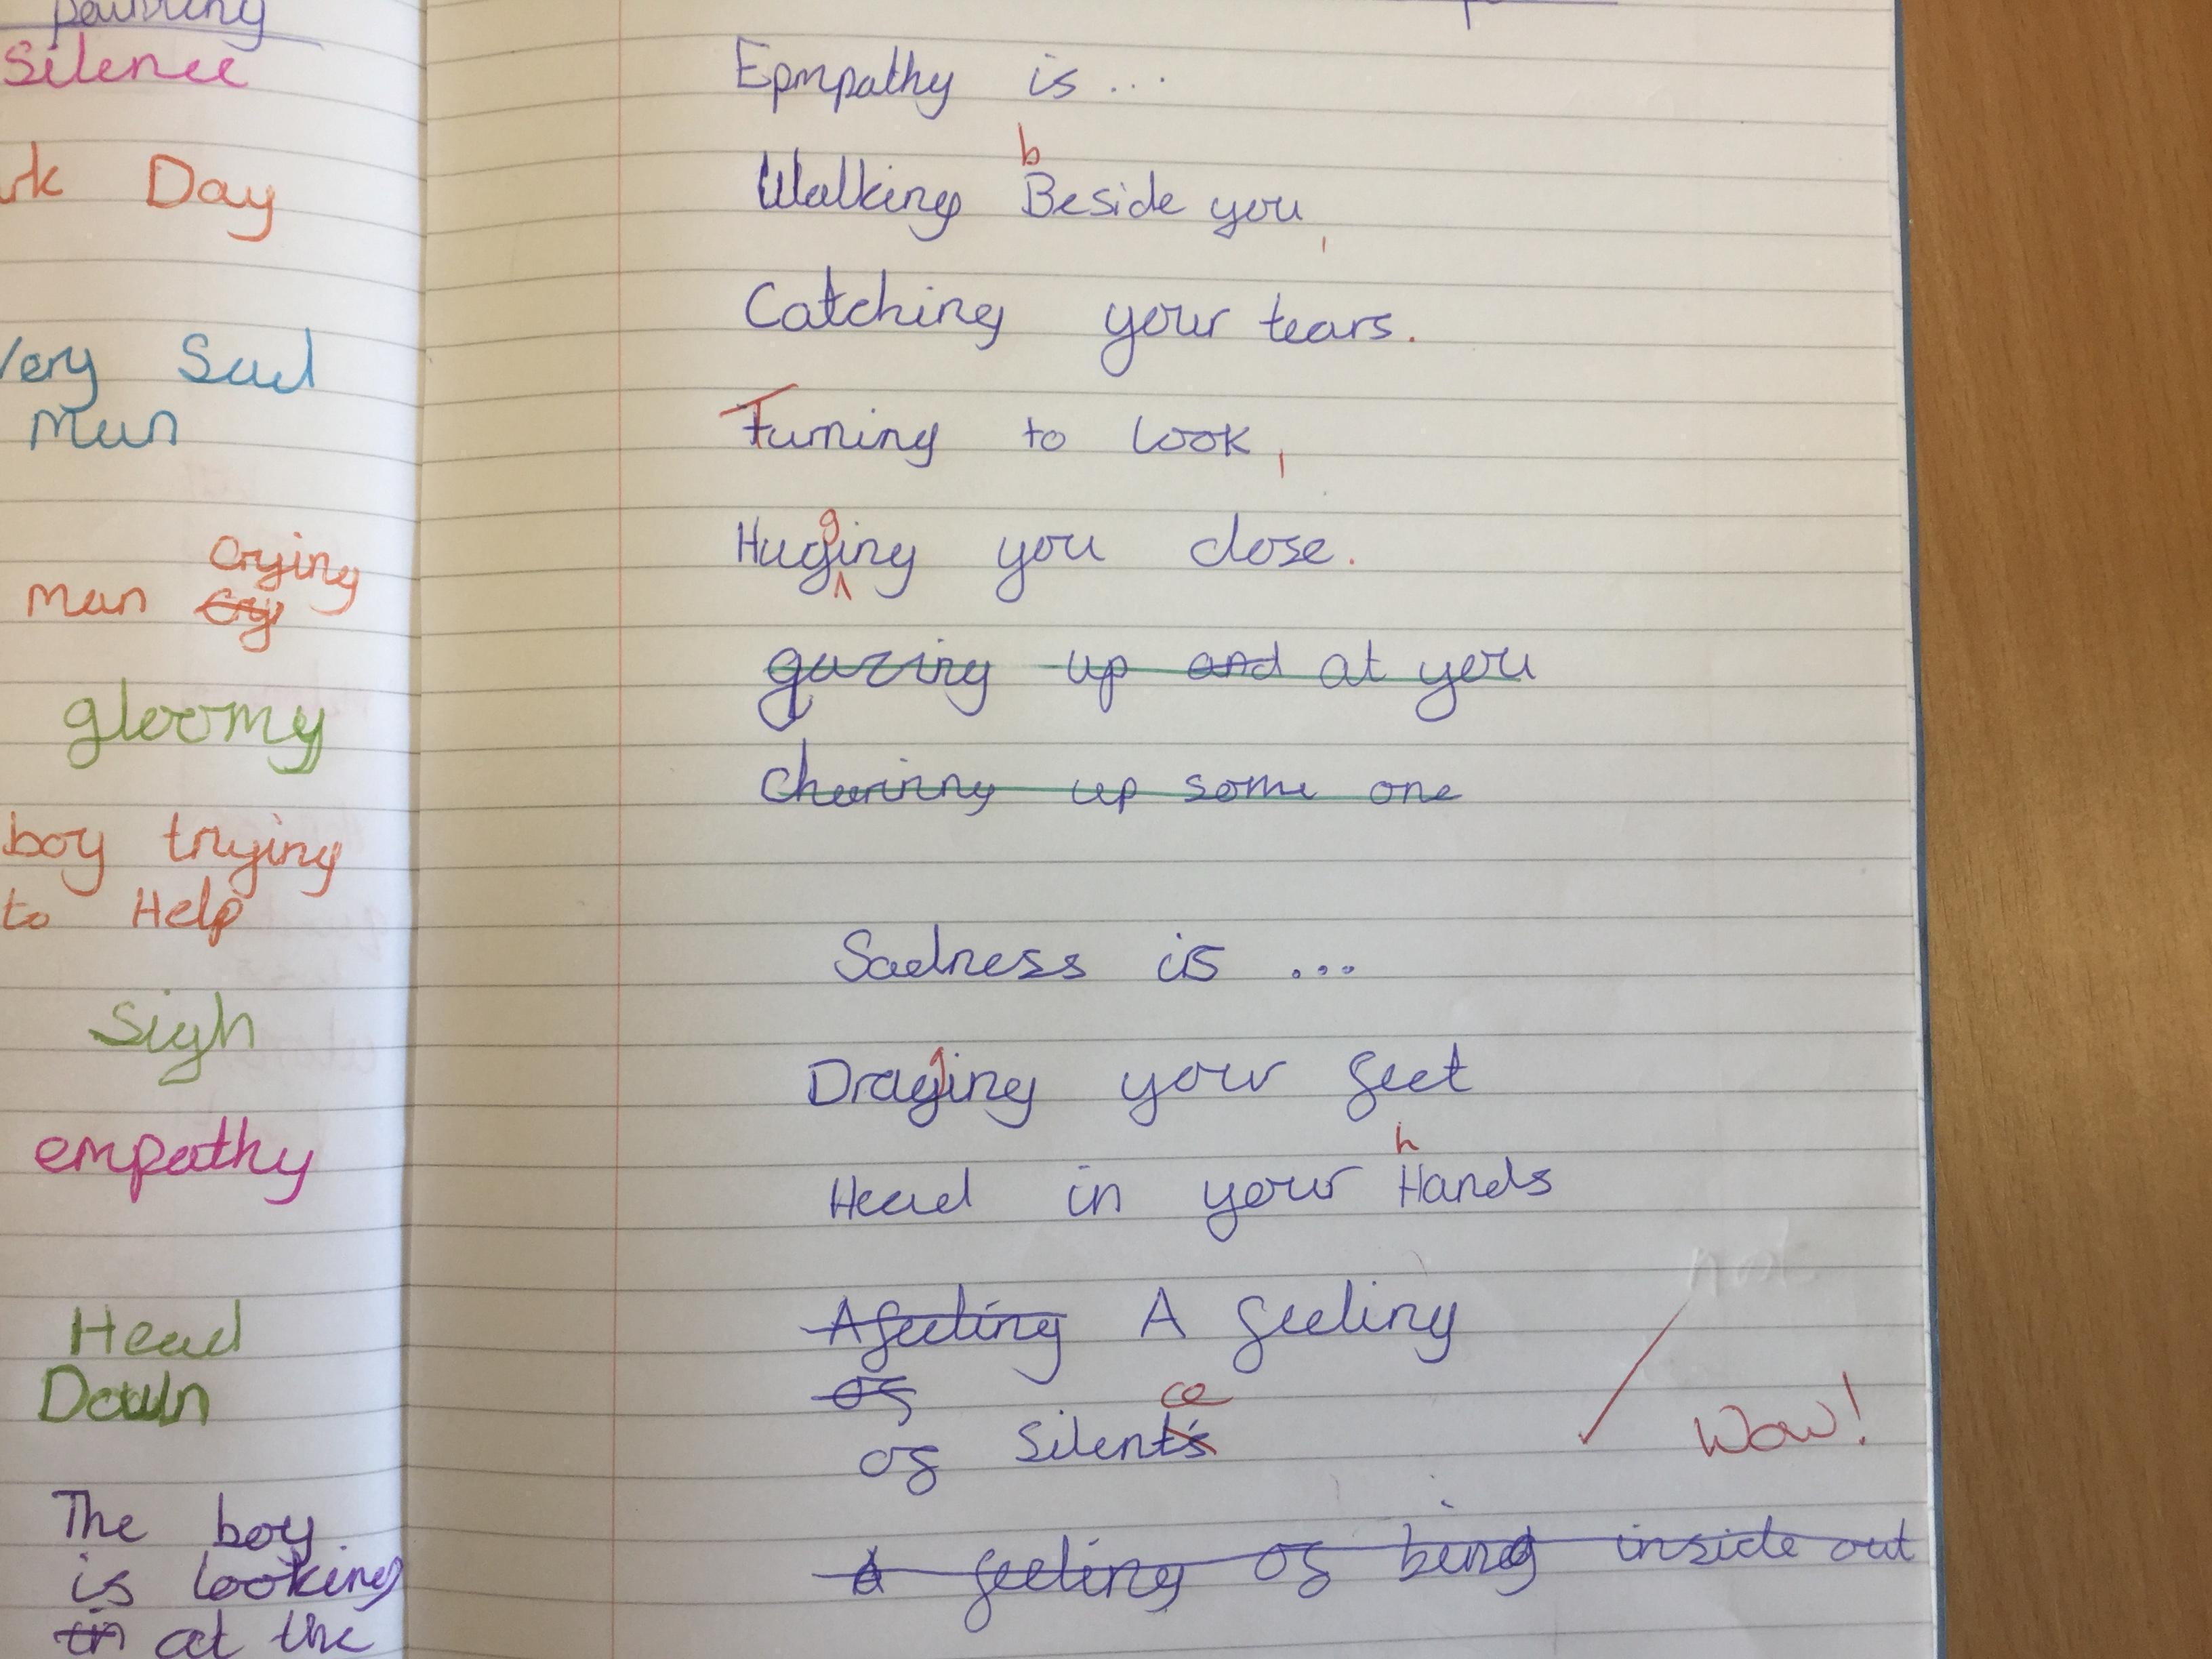 Silence
Day
Very Sad
Man
Crying
Man Cry
gloomy
boy trying
to Help
Sigh
empathy
Head
Down
The boy
is looking
in at the
Epmpathy is...
b
Walking Beside you,
Catching your tears.
Turning to look,
g
Huging you close.
gazing up and at you
Cheerinny up some one
Sadness is ...
g
Draging your feet
h
Head in your Hands
A feeling A feeling
of
ce
of Silent's
Wow!
a feeling of being inside out